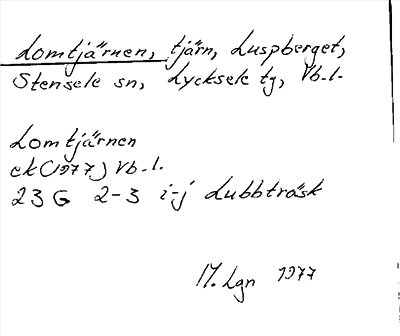 Lomtjärnen, tjärn, Luspberget,
Stensele sn, Lycksele tg, Vb.l.
Lomtjärnen
ek(1977) Vb.l.
23 G 2-3 i-j Lubbträsk
M. Lgn 1977